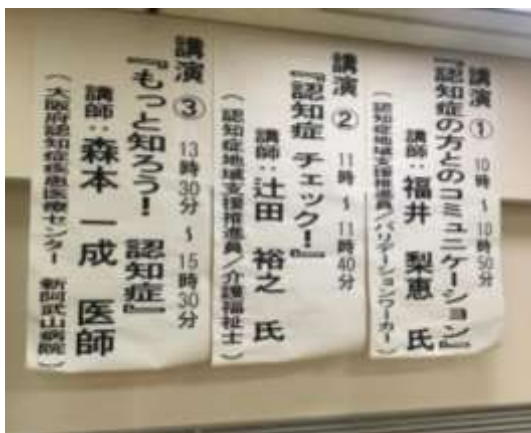 講演 ① 10時～10時50分
『認知症の方とのコミュニケーション』
講師：福井 梨恵 氏
（認知症地域支援推進員／バリデーションワーカー）
講演 ② 11時～11時40分
『認知症 チェック！』
講師：辻田 裕之 氏
（認知症地域支援推進員／介護福祉士）
講演 ③ 13時30分～15時30分
『もっと知ろう！ 認知症』
講師：森本 一成 医師
（大阪府認知症疾患医療センター 新阿武山病院）